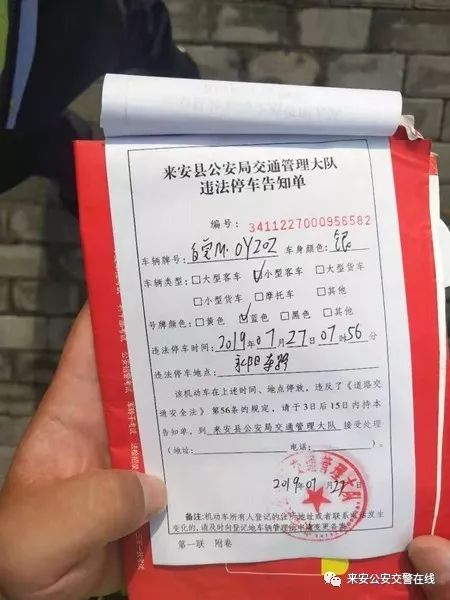 来安县公安局交通管理大队
违法停车告知单
编号: 3411227000956582
车辆牌号: 皖M·0Y202 车身颜色: 银
车辆类型: □大型客车 ☑小型客车 □大型货车
□小型货车 □摩托车 □其他
号牌颜色: □黄色 ☑蓝色 □黑色 □其他
违法停车时间: 2019年07月27日07时56分
违法停车地点: 永阳东路
该机动车在上述时间、地点停放,违反了《道路交
通安全法》第56条的规定,请于3日后15日内持本
告知单,到 来安县公安局交通管理大队 接受处理
(地址: 电话: )
交通管理大队
2019年07月27日
备注:机动车所有人登记的住所地址或者联系电话发生
变化的,请及时向登记地车辆管理所申请变更备案
第一联 附卷
来安公安交警在线